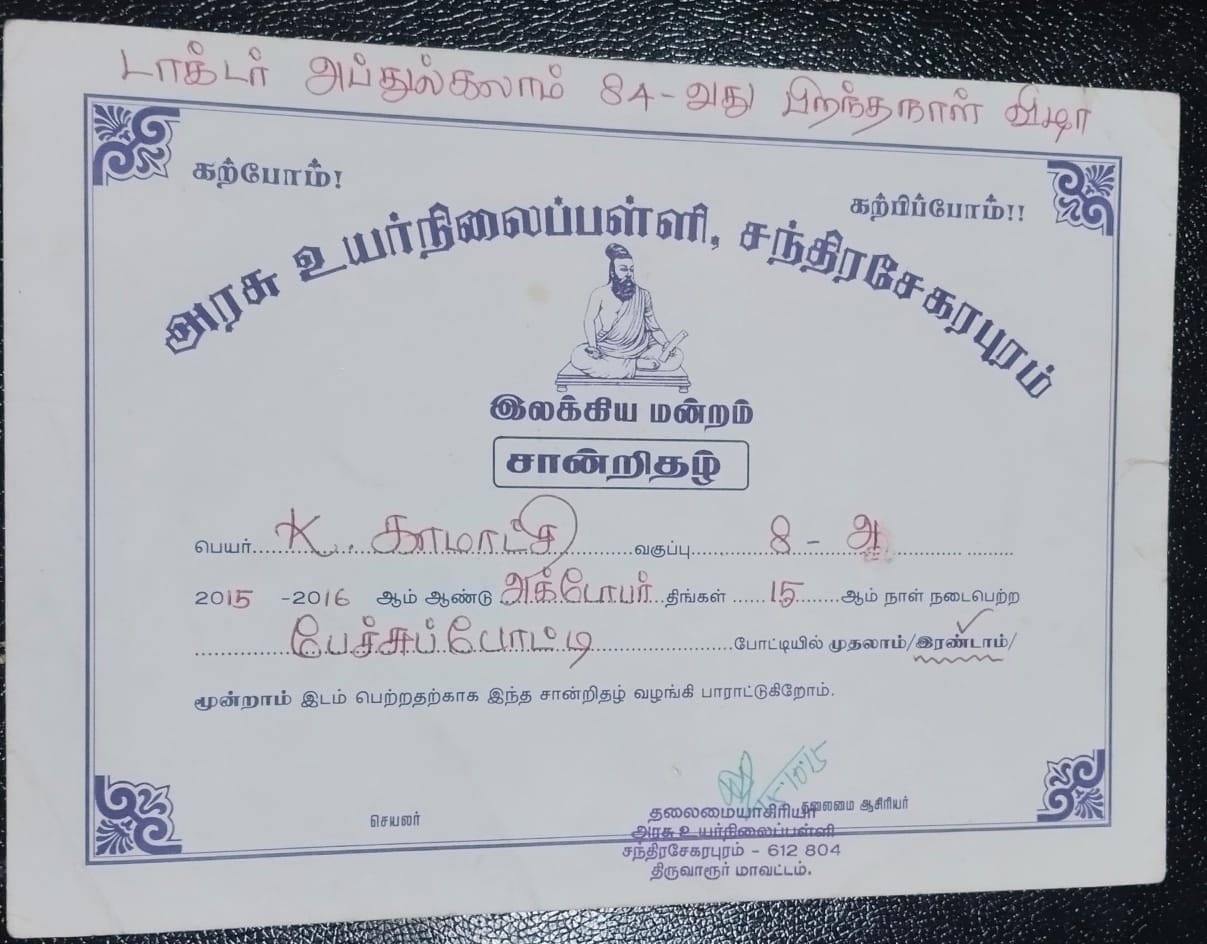 டாக்டர் அப்துல்கலாம் 84-வது பிறந்தநாள் விழா
கற்போம்!
கற்பிப்போம்!!
அரசு உயர்நிலைப்பள்ளி, சந்திரசேகரபுரம்
இலக்கிய மன்றம்
சான்றிதழ்
பெயர்.....K. காமாட்சி.....வகுப்பு.....8 - ஆ.....
2015 -2016 ஆம் ஆண்டு அக்டோபர் திங்கள் ......15.......ஆம் நாள் நடைபெற்ற
.....பேச்சுப்போட்டி.....போட்டியில் முதலாம்/இரண்டாம்/
மூன்றாம் இடம் பெற்றதற்காக இந்த சான்றிதழ் வழங்கி பாராட்டுகிறோம்.
15.10.15
செயலர்
தலைமை ஆசிரியர்
தலைமையாசிரியர்
அரசு உயர்நிலைப்பள்ளி
சந்திரசேகரபுரம் - 612 804
திருவாரூர் மாவட்டம்.